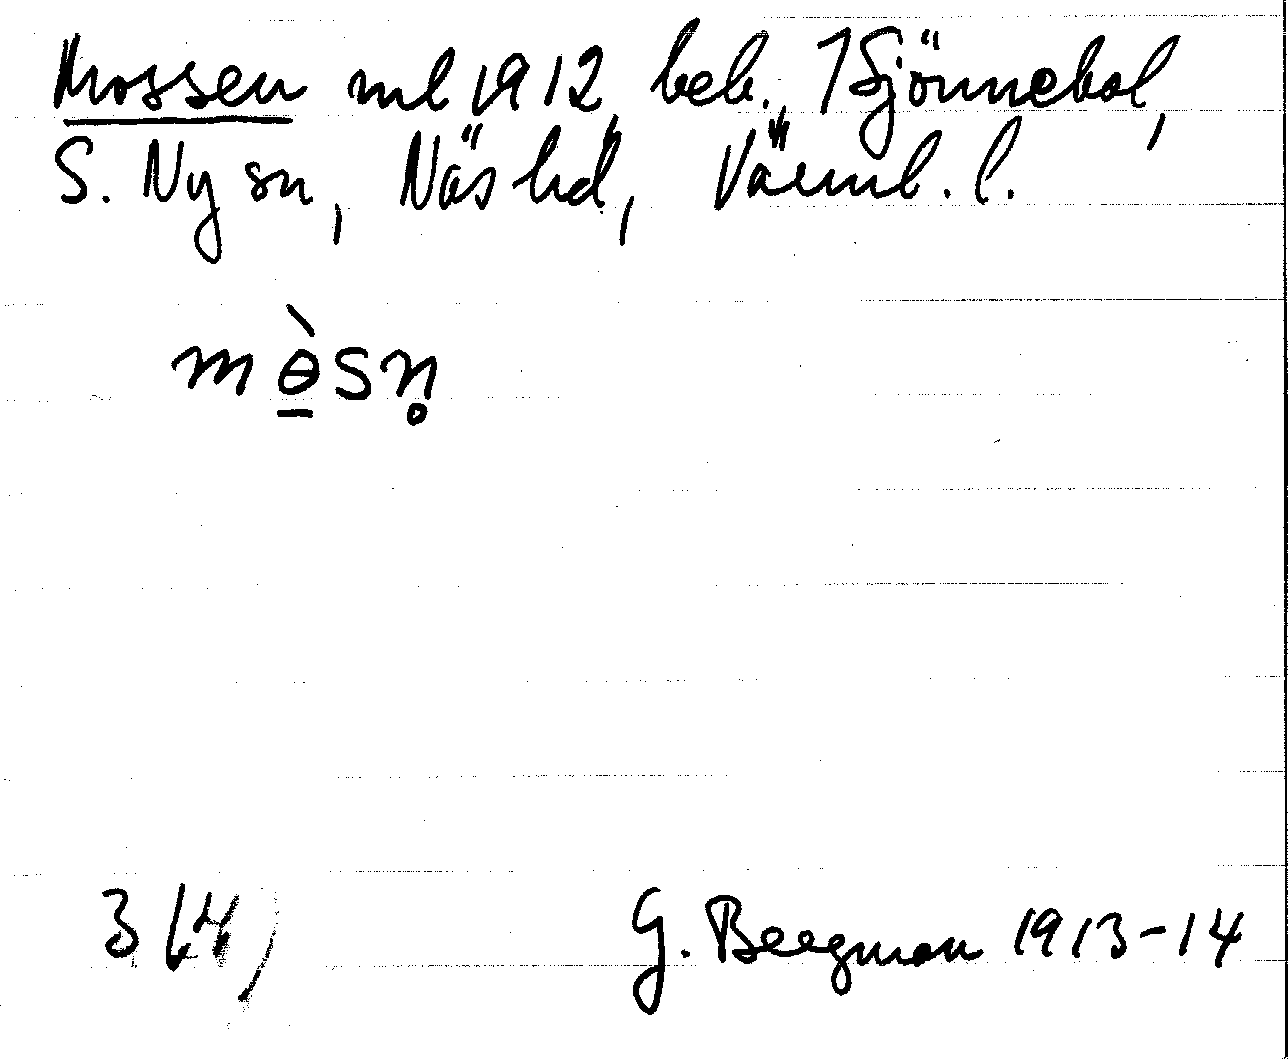 Mossen ml 1912, beb., Tjönnebol,
S. Ny sn, Näs hd, Värml. l.
mɵ̱̀sn̥
3 (4)
G. Bergman 1913-14